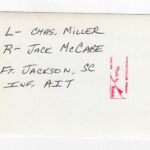 L- CHAS. MILLER
R- JACK McCABE
FT. JACKSON, SC
INF. AIT